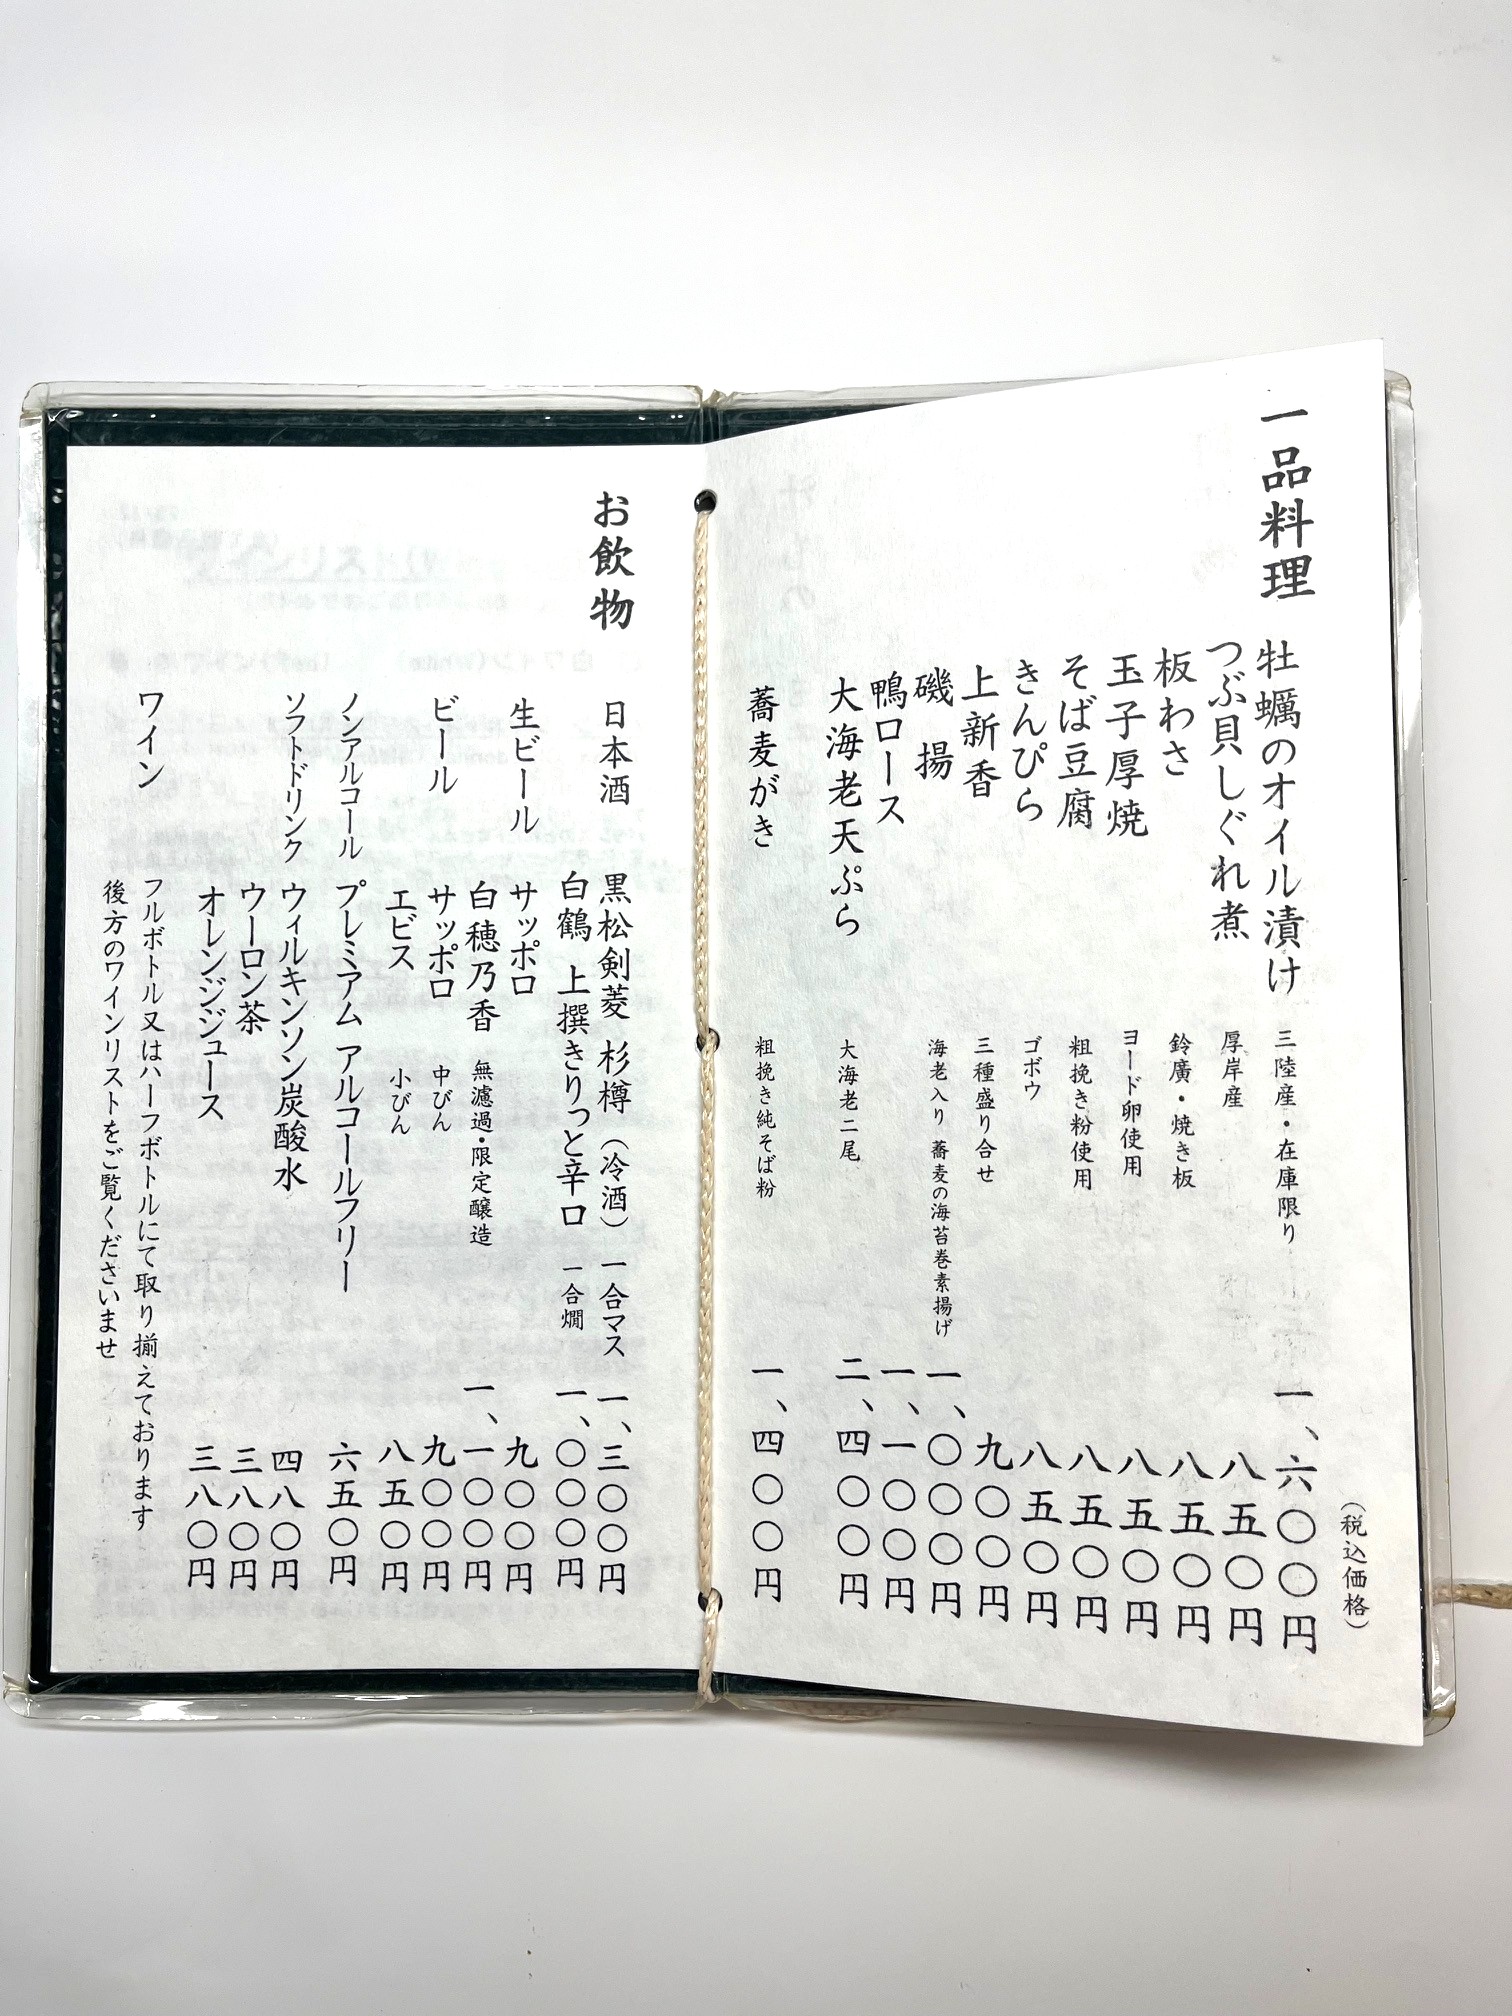 一品料理
(税込価格)
牡蠣のオイル漬け 三陸産・在庫限り 一、六〇〇円
つぶ貝しぐれ煮 厚岸産 八五〇円
板わさ 鈴廣・焼き板 八五〇円
玉子厚焼 ヨード卵使用 八五〇円
そば豆腐 粗挽き粉使用 八五〇円
きんぴら ゴボウ 八五〇円
上新香 三種盛り合せ 九〇〇円
磯 揚 海老入り 蕎麦の海苔巻素揚げ 一、〇〇〇円
鴨ロース 一、一〇〇円
大海老天ぷら 大海老二尾 二、四〇〇円
蕎麦がき 粗挽き純そば粉 一、四〇〇円
お飲物
日本酒 黒松剣菱 杉樽 (冷酒) 一合マス 一、三〇〇円
白鶴 上撰きりっと辛口 一合燗 一、〇〇〇円
生ビール サッポロ 九〇〇円
白穂乃香 無濾過・限定醸造 一、一〇〇円
ビール サッポロ 中びん 九〇〇円
エビス 小びん 八五〇円
ノンアルコール プレミアム アルコールフリー 六五〇円
ソフトドリンク ウィルキンソン炭酸水 四八〇円
ウーロン茶 三八〇円
オレンジジュース 三八〇円
ワイン フルボトル又はハーフボトルにて取り揃えております
後方のワインリストをご覧くださいませ